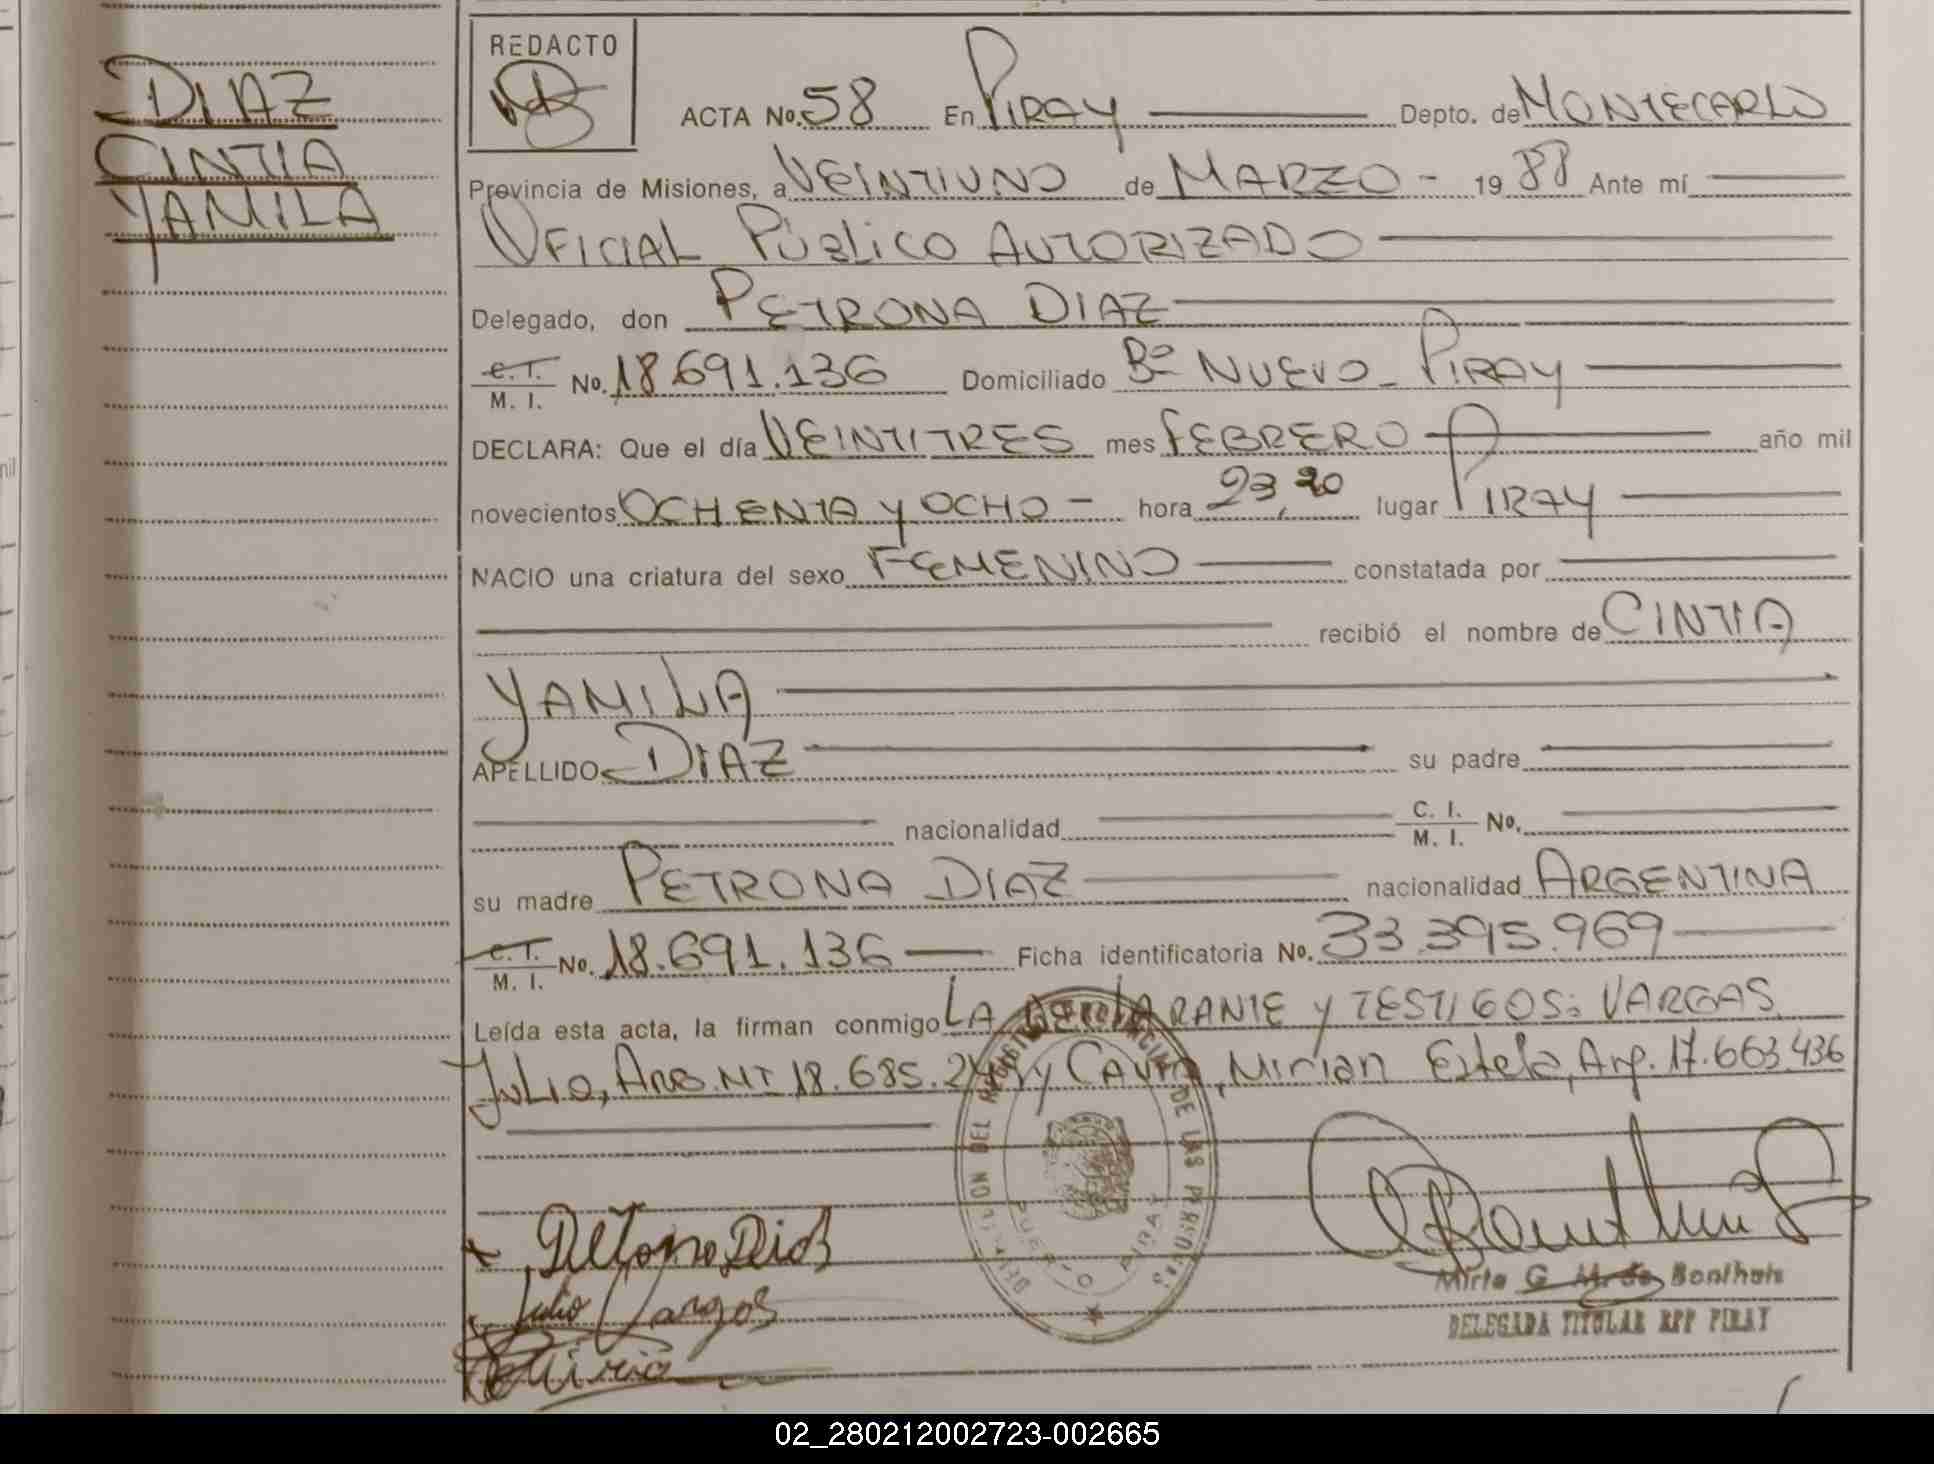 DIAZ
CINTIA
YAMILA
REDACTO
ACTA No. 58 En PIRAY Depto. de MONTECARLO
Provincia de Misiones, a VEINTIUNO de MARZO - 19 88 Ante mí
OFICIAL PÚBLICO AUTORIZADO
Delegado, don PETRONA DIAZ
C. I.
M. I. No. 18.691.136 Domiciliado Bº NUEVO - PIRAY
DECLARA: Que el día VEINTITRES mes FEBRERO año mil
novecientos OCHENTA Y OCHO - hora 23,20 lugar PIRAY
NACIO una criatura del sexo FEMENINO constatada por
recibió el nombre de CINTIA
YAMILA
APELLIDO DIAZ su padre
nacionalidad C. I.
M. I. No.
su madre PETRONA DIAZ nacionalidad ARGENTINA
C. I.
M. I. No. 18.691.136 Ficha identificatoria No. 33.395.969
Leída esta acta, la firman conmigo LA DECLARANTE Y TESTIGOS: VARGAS
JULIO, ARG. MI 18.685. Y Mirian Estela, Arg. 17.663.436
DELEGACION DEL REGISTRO PROVINCIAL DE LAS PERSONAS
PUERTO PIRAY
Petrona Diaz
Julio Vargas
Mirta G. M. de Bonthuis
DELEGADA TITULAR RPP PIRAY
02_280212002723-002665